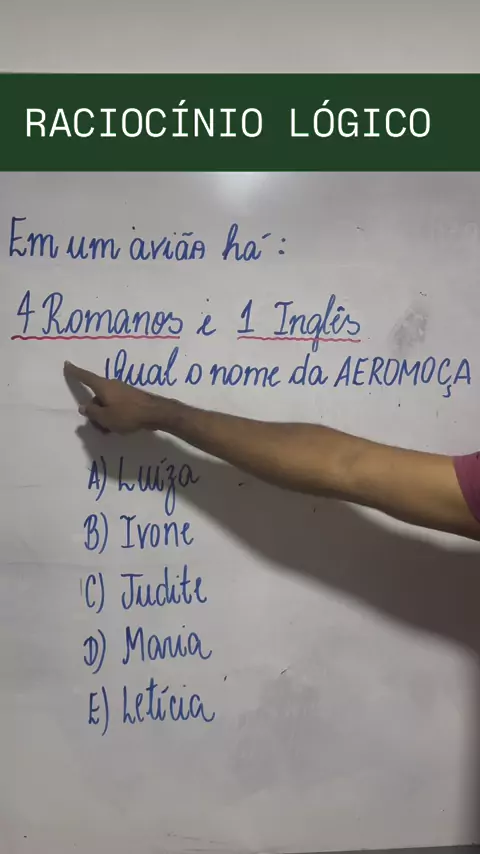 RACIOCÍNIO LÓGICO
Em um avião há:
4 Romanos e 1 Inglês
Qual o nome da AEROMOÇA
A) Luíza
B) Ivone
C) Judite
D) Maria
E) Letícia